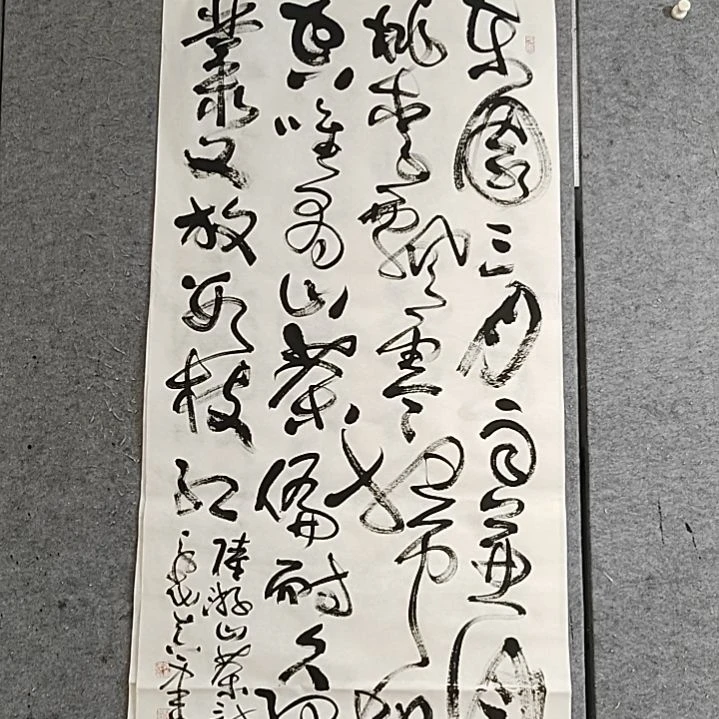 东园三月雨兼风
桃李飘零扫地空
唯有山茶偏耐久绿
丛又放数枝红
陆游山茶诗